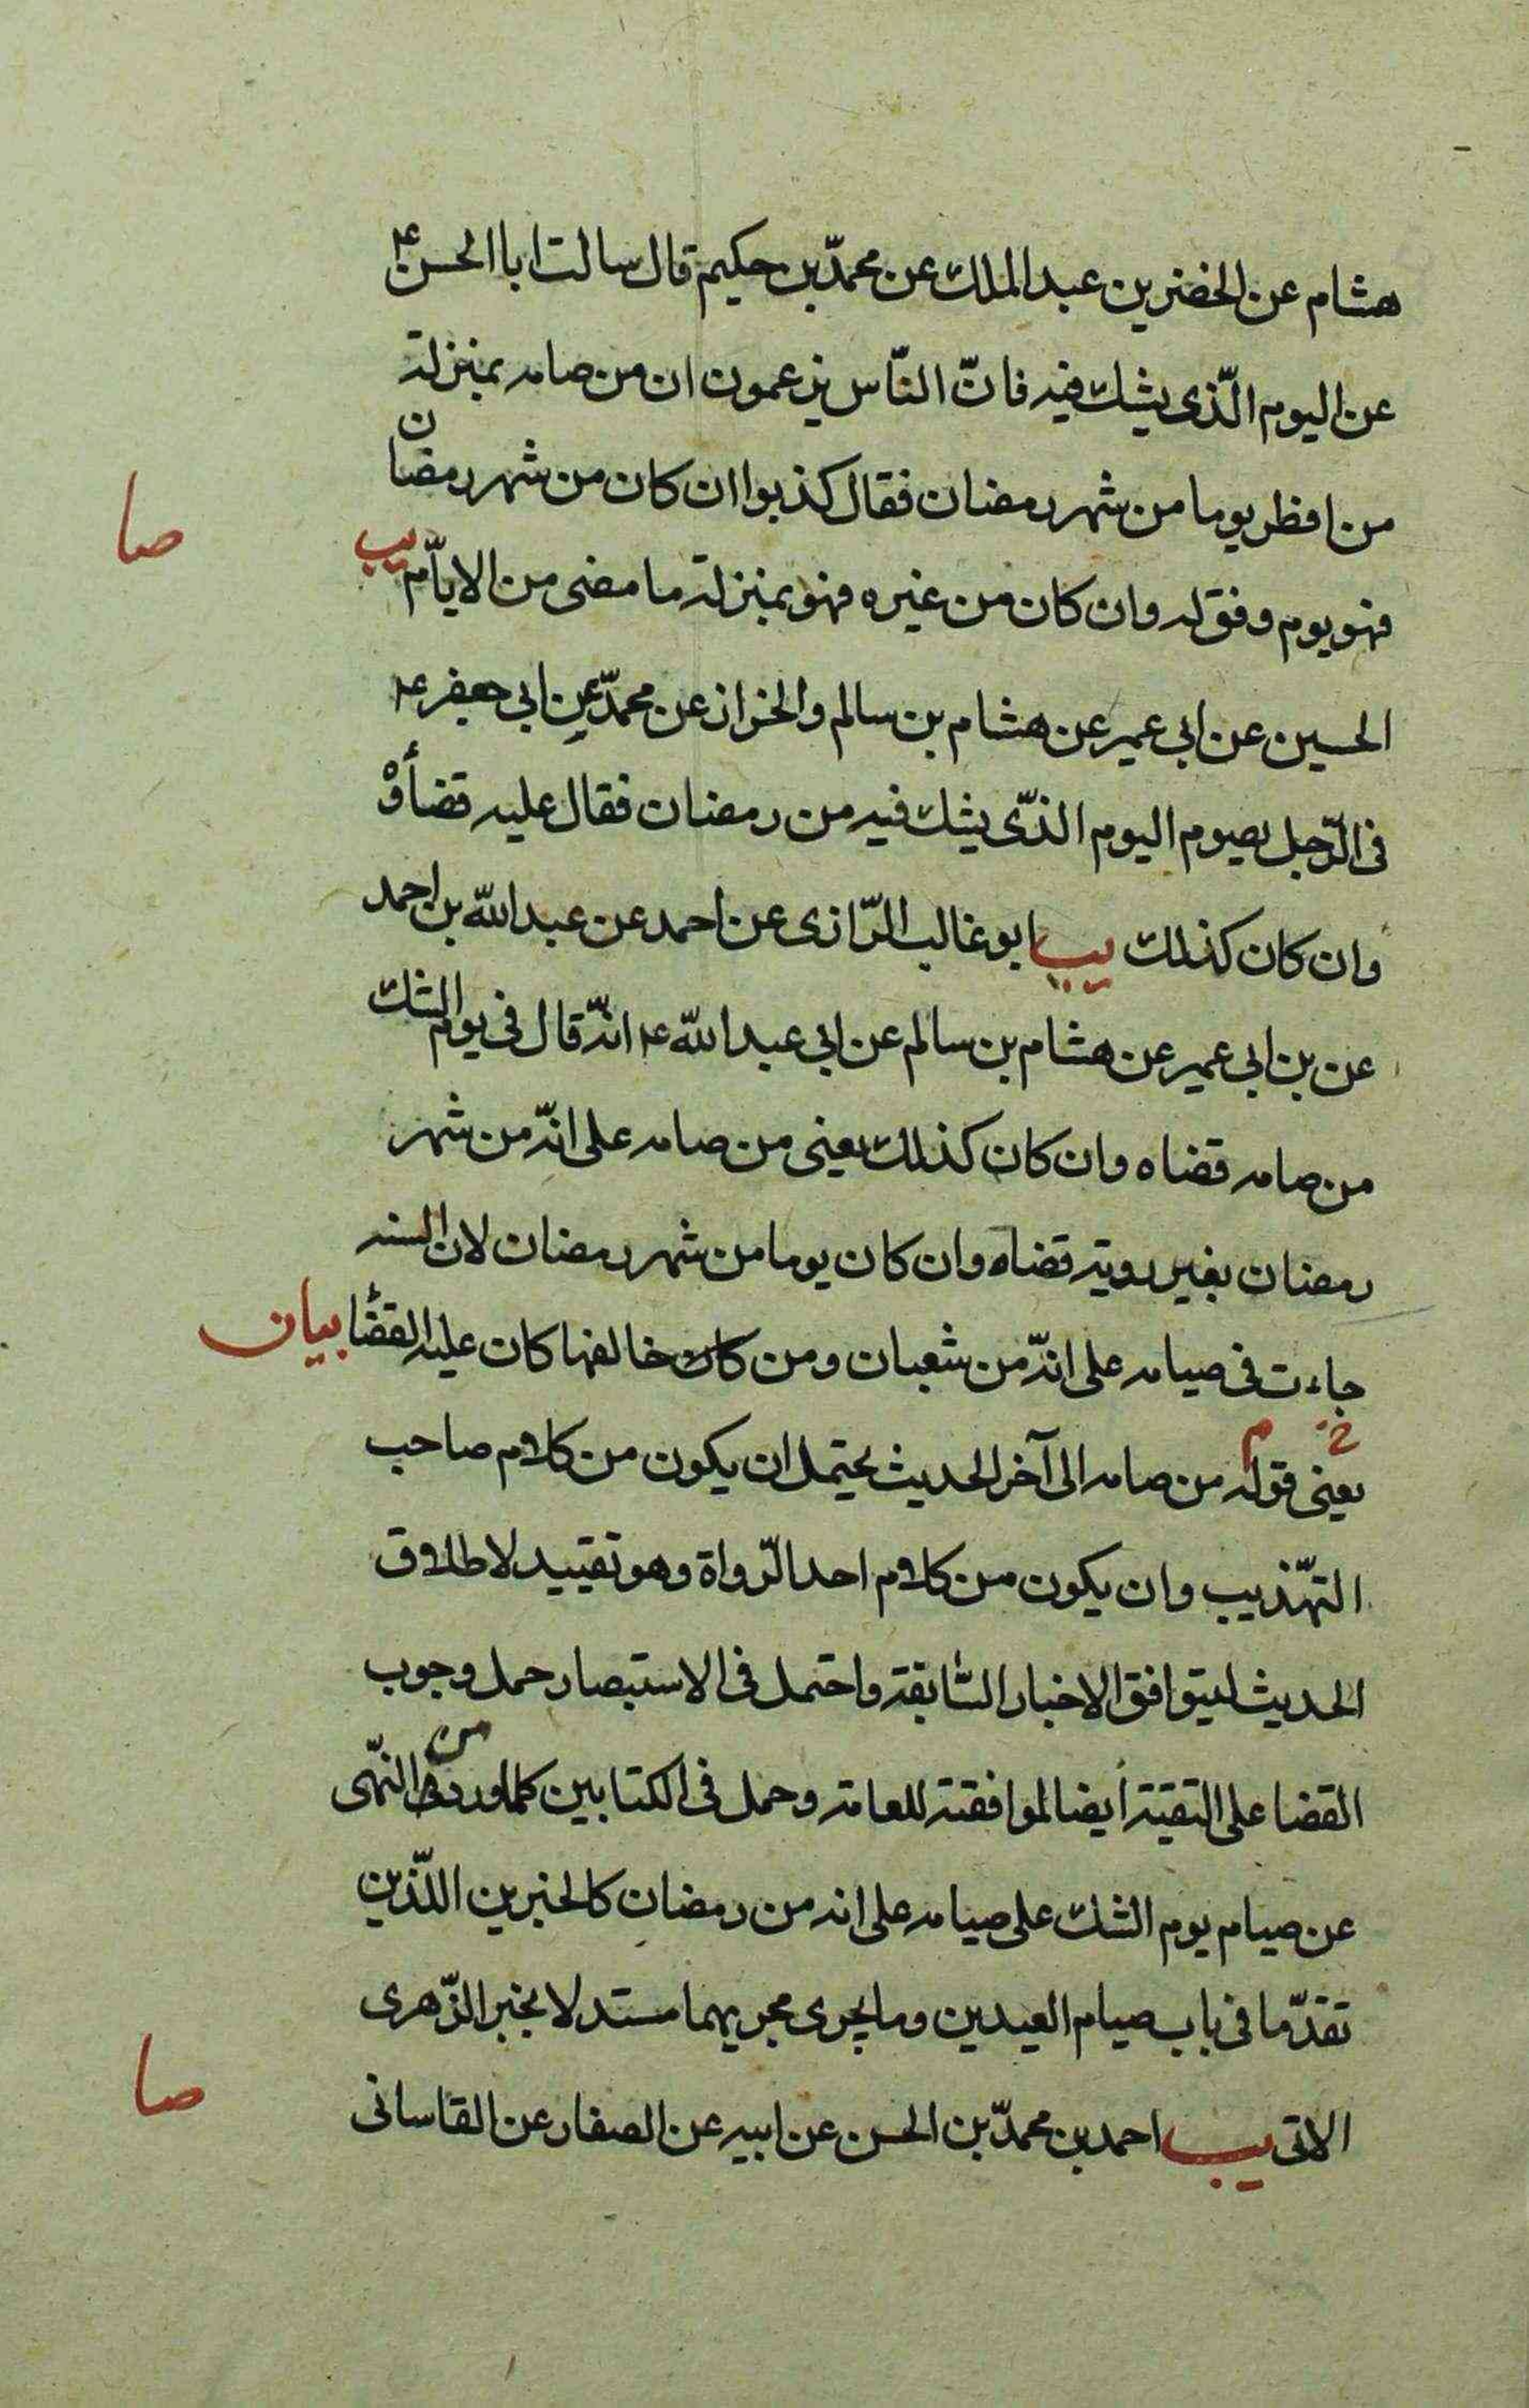 هشام عن الخضر بن عبد الملك عن محمّد بن حكيم قال سالت ابا الحسن ع
عن اليوم الّذى يشك فيه فانّ النّاس يزعمون ان من صامه بمنزلة
من افطر يوما من شهر رمضان فقال كذبوا ان كان من شهر رمضان
صا
فهو يوم وفق له وان كان من غيره فهو بمنزلة ما مضى من الايّام يب
الحسين عن ابى عمير عن هشام بن سالم والخزاز عن محمّد عن ابى جعفر ع
فى الرّجل يصوم اليوم الذّى يشك فيه من رمضان فقال عليه قضأوْ
وان كان كذلك يب ابو غالب الرّازى عن احمد عن عبد الله بن احمد
عن بن ابى عمير عن هشام بن سالم عن ابى عبد الله ع انّه قال فى يوم الشك
من صامه قضاه وان كان كذلك يعنى من صامه على انّه من شهر
رمضان بغير روية قضاه وان كان يوما من شهر رمضان لان السنه
جاءت فى صيامه على انّه من شعبان ومن كان خالفها كان عليه القضأ بيان
يعنى قوله من صامه الى آخر الحديث يحتمل ان يكون من كلام صاحب
التهّذيب وان يكون من كلام احد الرّواة وهو تقييد لاطلاق
الحديث ليتوافق الاخبار السّابقة واحتمل فى الاستبصار حمل وجوب
القضا على التقية أيضا لموافقته للعامة وحمل فى الكتابين كلما ورد من النّهى
عن صيام يوم الشك على صيامه على انه من رمضان كالخبرين اللّذين
تقدّما فى باب صيام العيدين وما يجرى مجريهما مستدلا بخبر الزّهرى
صا
الاتى يب احمد بن محمّد بن الحسن عن ابيه عن الصفار عن القاسانى